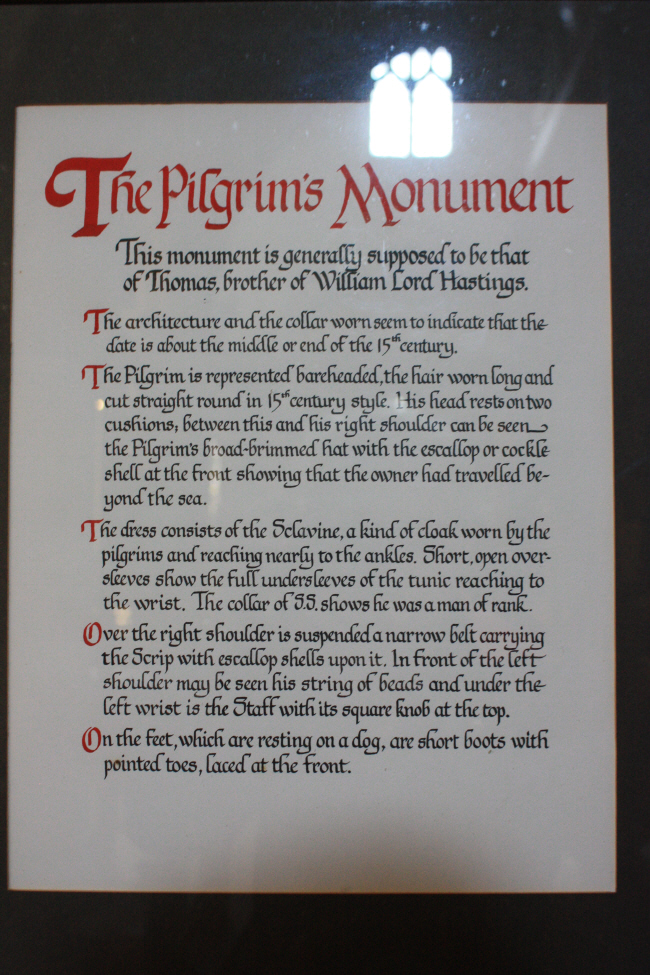 The Pilgrim's Monument
This monument is generally supposed to be that
of Thomas, brother of William Lord Hastings.
The architecture and the collar worn seem to indicate that the
date is about the middle or end of the 15th century.
The Pilgrim is represented bareheaded, the hair worn long and
cut straight round in 15th century style. His head rests on two
cushions; between this and his right shoulder can be seen
the Pilgrim's broad-brimmed hat with the escallop or cockle
shell at the front showing that the owner had travelled be-
yond the sea.
The dress consists of the Sclavine, a kind of cloak worn by the
pilgrims and reaching nearly to the ankles. Short, open over-
sleeves show the full undersleeves of the tunic reaching to
the wrist. The collar of S.S. shows he was a man of rank.
Over the right shoulder is suspended a narrow belt carrying
the Scrip with escallop shells upon it. In front of the left
shoulder may be seen his string of beads and under the
left wrist is the Staff with its square knob at the top.
On the feet, which are resting on a dog, are short boots with
pointed toes, laced at the front.